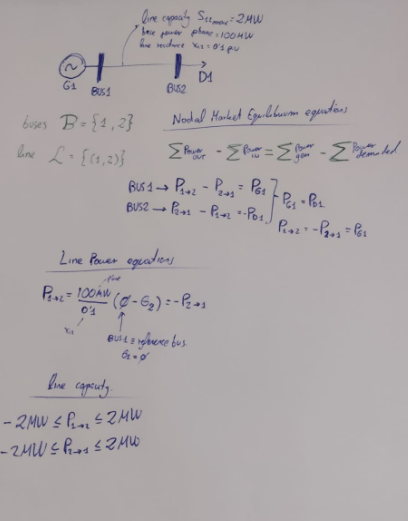 line capacity S12max = 2MW
base power phase = 100MW
line reactance x12 = 0'1 pu
G1
BUS1
BUS2
D1
buses B = {1, 2}
Nodal Market Equilibrium equations
line L = {(1,2)}
∑Power OUT - ∑Power IN = ∑Power gen - ∑Power demanded
BUS1 → P1→2 - P2→1 = PG1
BUS2 → P2→1 - P1→2 = -PD1
PG1 = PD1
P1→2 = -P2→1 = PG1
Line Power equations
P1→2 = 100MW / 0'1 (ø - G2) = -P2→1
x12
BUS1 = reference bus
G2 = ø
line capacity
-2MW ≤ P1→2 ≤ 2MW
-2MW ≤ P2→1 ≤ 2MW